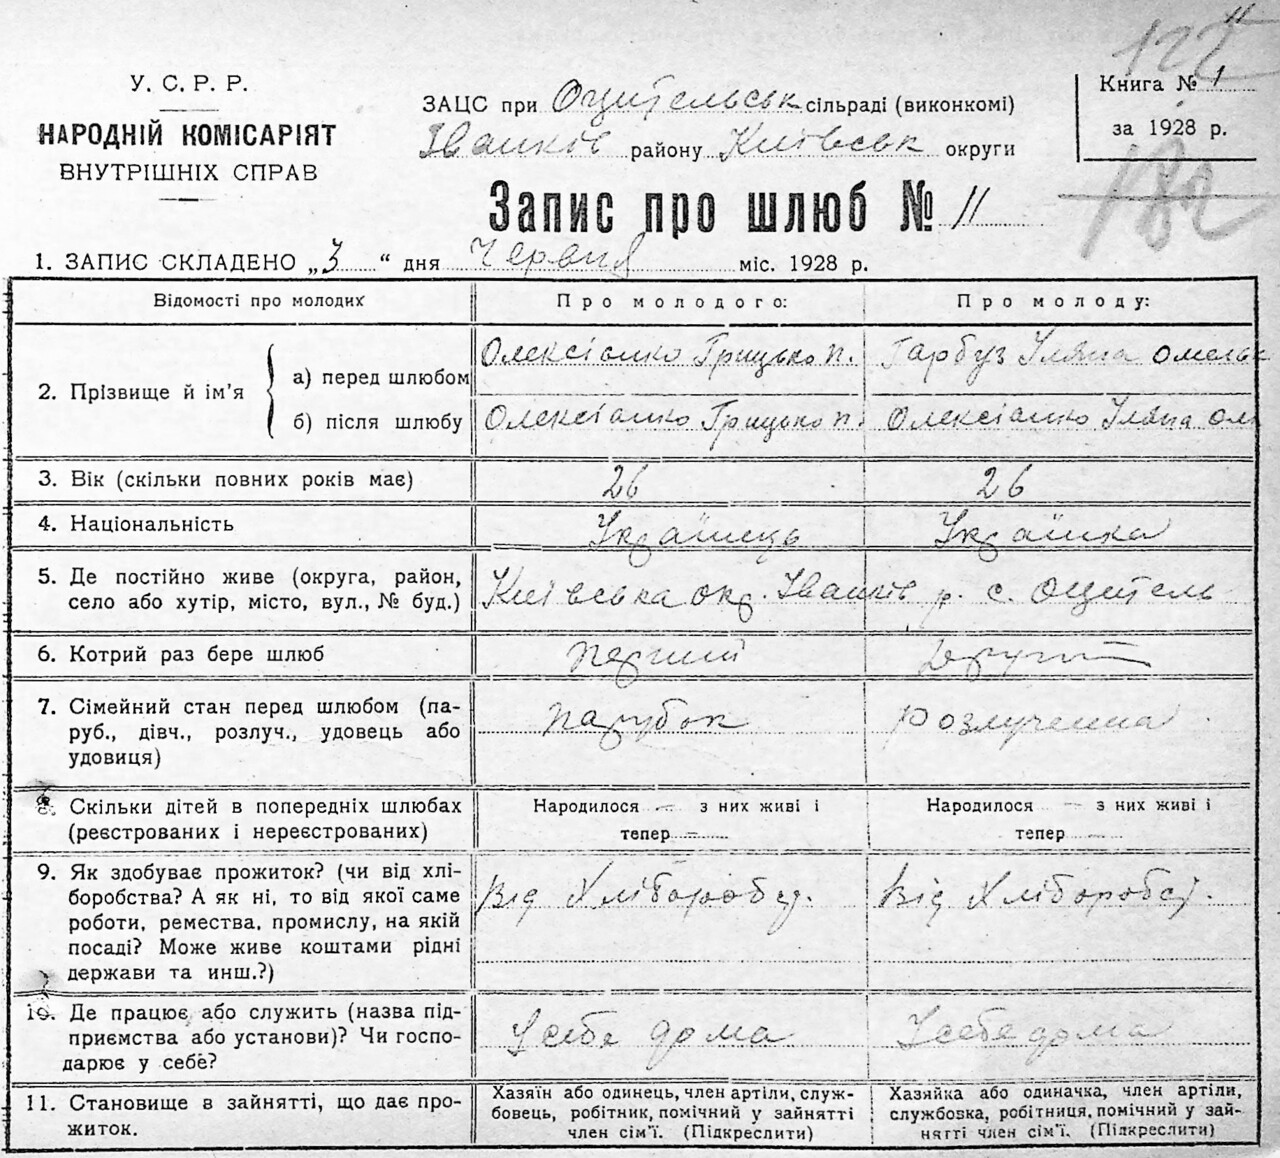 122
У. С. Р. Р.
НАРОДНІЙ КОМІСАРІЯТ
ВНУТРІШНІХ СПРАВ
ЗАЦС при Оцительськ сільраді (виконкомі)
Іванків району Київськ округи
Книга № 1
за 1928 р.
182
Запис про шлюб № 11
1. ЗАПИС СКЛАДЕНО „3“ дня Червня міс. 1928 р.
Відомості про молодих
Про молодого:
Про молоду:
2. Прізвище й ім'я
а) перед шлюбом
Олексієнко Грицько п.
Гарбуз Уляна омельк
б) після шлюбу
Олексієнко Грицько п.
Олексієнко Уляна ом
3. Вік (скільки повних років має)
26
26
4. Національність
Українець
Українка
5. Де постійно живе (округа, район,
село або хутір, місто, вул., № буд.)
Київська окр. Іванків р. с. Оцитель
6. Котрий раз бере шлюб
перший
другий
7. Сімейний стан перед шлюбом (па-
руб., дівч., розлуч., удовець або
удовиця)
парубок
розлученна
8. Скільки дітей в попередніх шлюбах
(реєстрованих і нереєстрованих)
Народилося — з них живі і
тепер —
Народилося — з них живі і
тепер —
9. Як здобуває прожиток? (чи від хлі-
боробства? А як ні, то від якої саме
роботи, ремества, промислу, на якій
посаді? Може живе коштами рідні
держави та инш.?)
Від Хлібороб
Від Хлібороб
10. Де працює або служить (назва під-
приємства або установи)? Чи госпо-
дарює у себе?
У себе дома
У себе дома
11. Становище в зайнятті, що дає про-
житок.
Хазяїн або одинець, член артіли, служ-
бовець, робітник, помічний у зайнятті
член сім'ї. (Підкреслити)
Хазяйка або одиначка, член артіли,
службовка, робітниця, помічний у зай-
нятті член сім'ї. (Підкреслити)